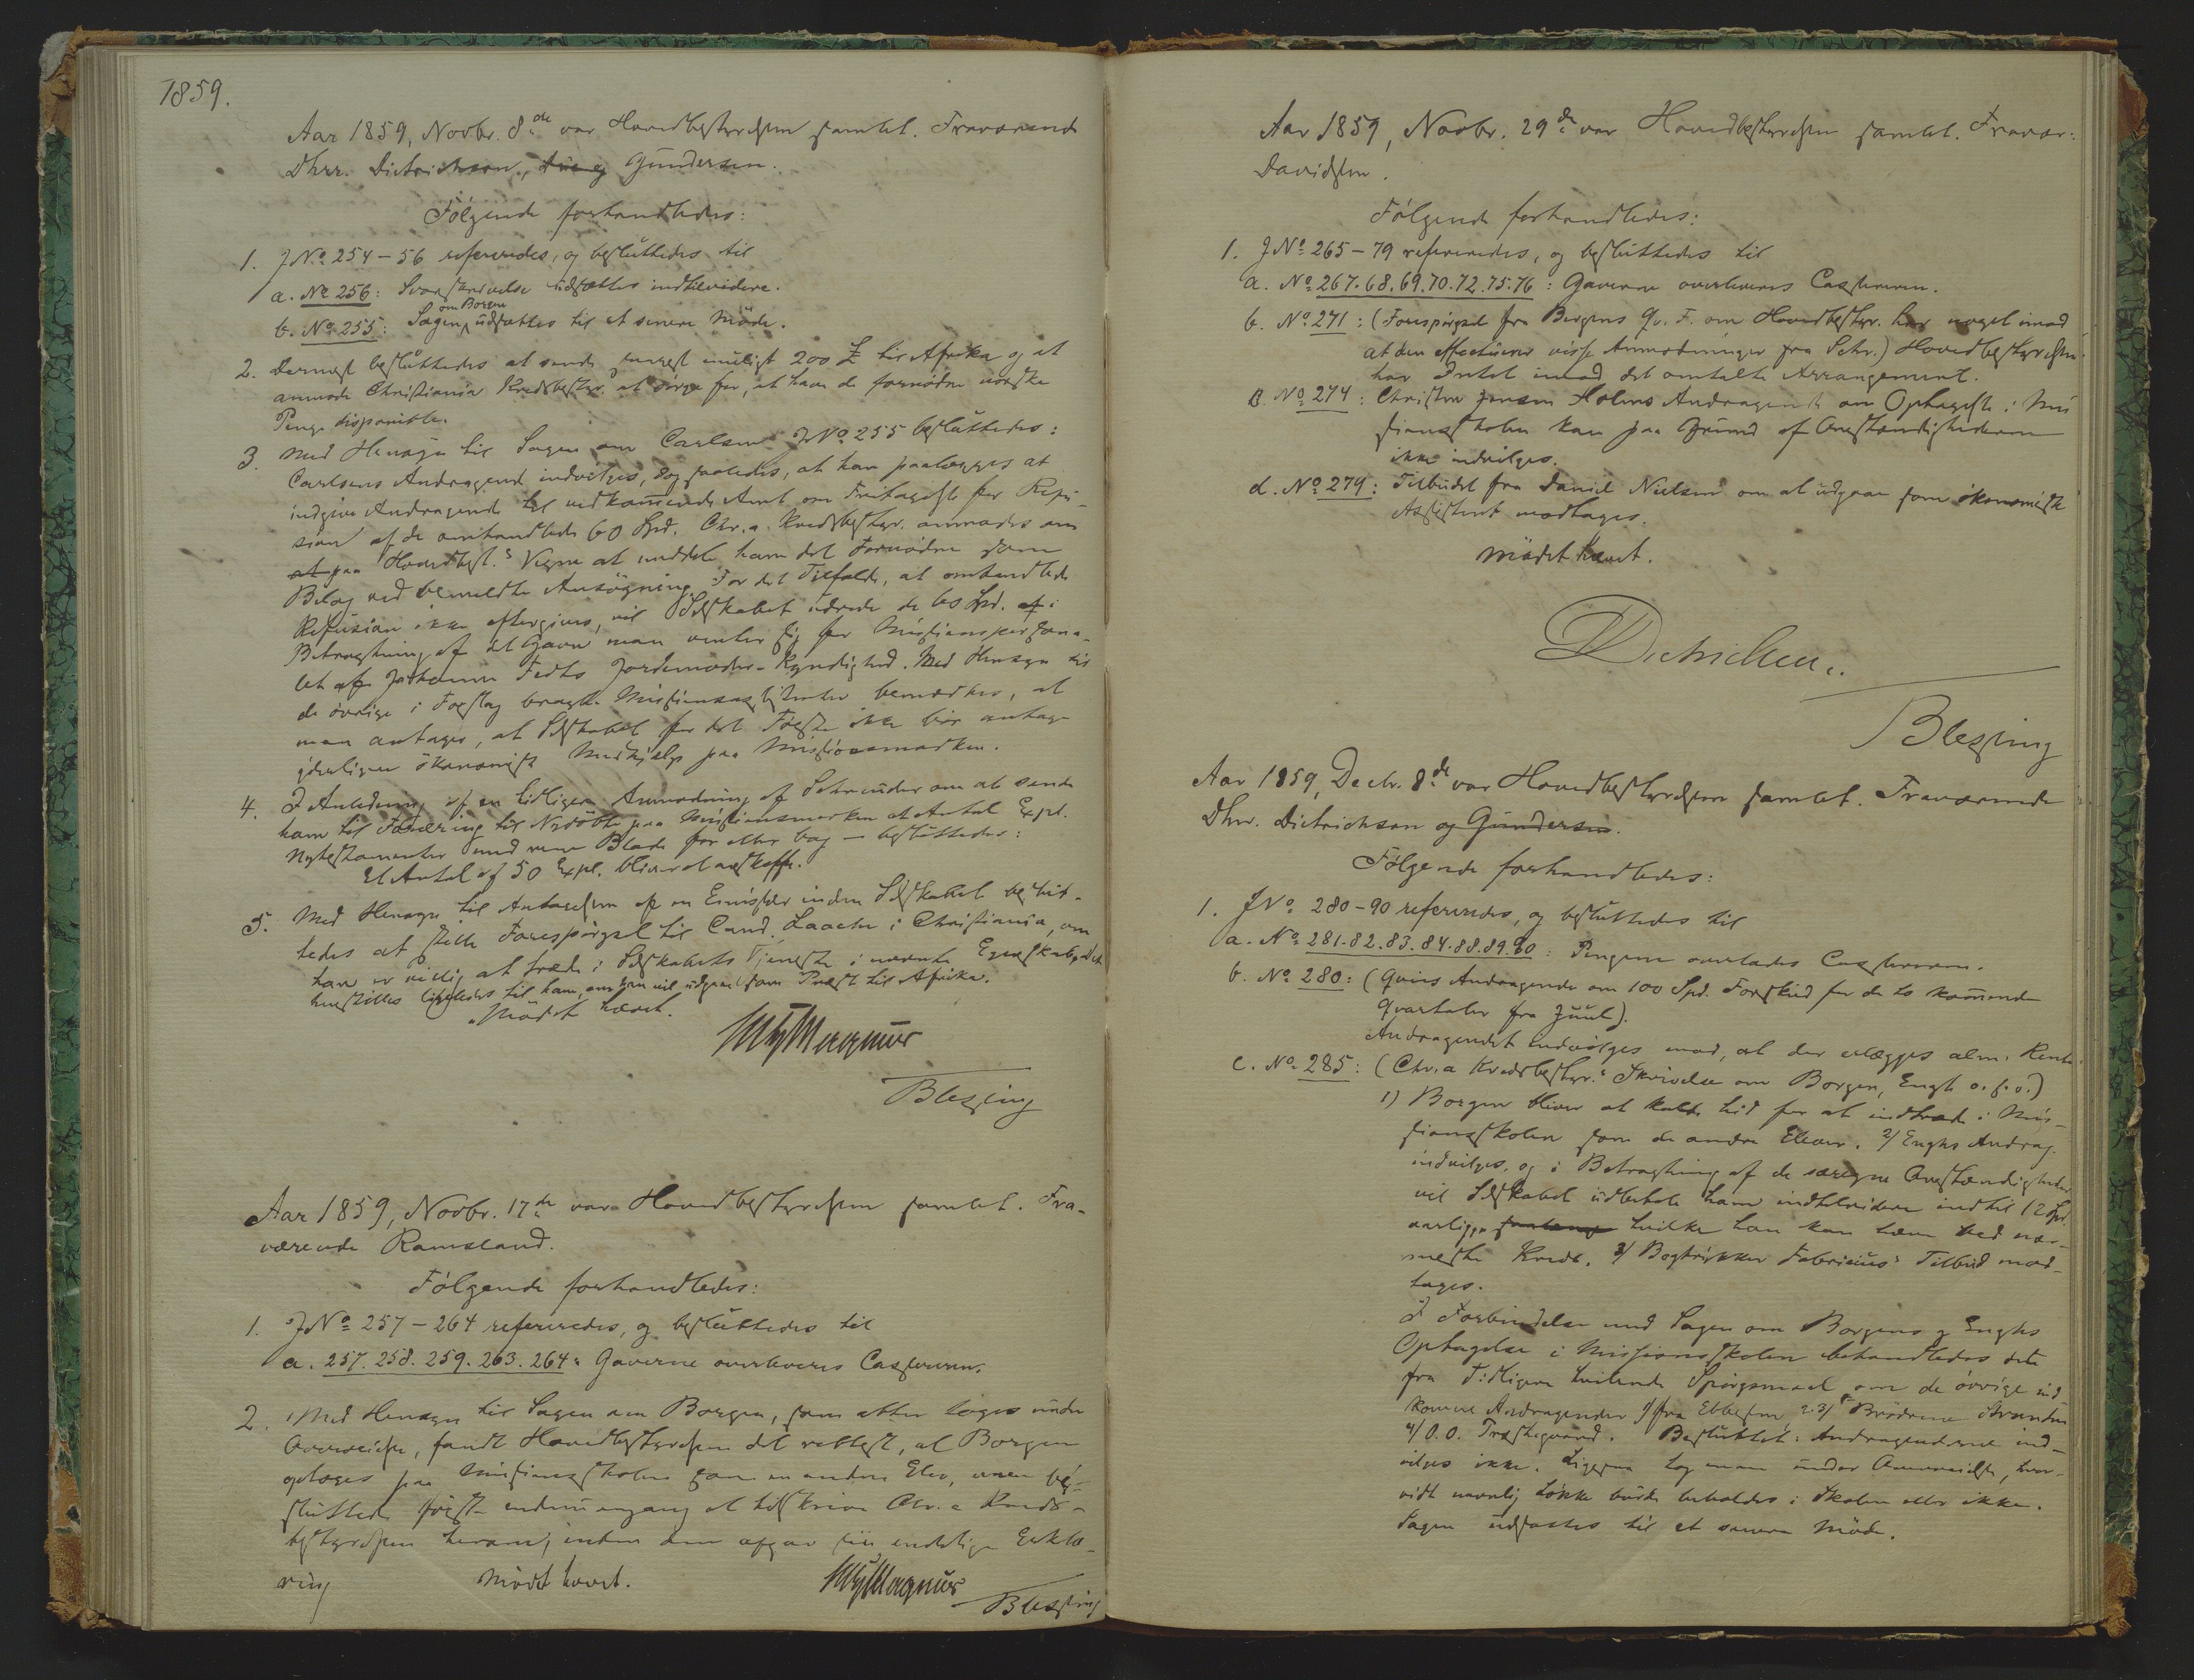 1859.
Aar 1859, Novbr. 8de var Hovedbestyrelsen samlet. Fraværende
Dhrr. Dietrichson, Gundersen.
Følgende forhandledes:
1. J No 254–56 refereredes, og besluttedes til
a. No 256: Svarskrivelse udsættes indtilvidere.
b. No 255: Sagen om Borgen udsættes til et senere Møde.
2. Dernæst besluttedes at sende snarest muligt 200 £ til Afrika og at
anmode Christiania Kredsbestyr. at sørge for, at have de fornødne norske
Penge disponible.
3. Med Hensyn til Sagen om Carlsen J No 255 besluttedes:
Carlsens Andragende indvilges, dog saaledes, at han paalægges at
indgive Andragende til vedkommende Amt om Fritagelse for Refu-
sion af de omhandlede 60 Spd. Chr.a Kredsbestyr. anmodes om
at paa Hovedbest.s Vegne at meddele ham det Fornødne som
Bilag ved bemeldte Ansøgning. For det Tilfælde, at omhandlede
Refusion ikke eftergives, vil Selskabet udrede de 60 Spd. i
Betragtning af det Gavn man venter sig for Missionspersona-
let af Johanne Fedts Jordemoder-Kyndighed. Med Hensyn til
de øvrige i Forslag bragte Missionsassistenter bemærkes, at
man antager, at Selskabet for det Første ikke bør antage
yderligere økonomisk Medhjælp paa Missionsmarken.
4. I Anledning af en tidligere Anmodning af Schreuder om at sende
ham til Foræring til Nydøbte paa Missionsmarken et Antal Expl.
Nytestamenter med rene Blade for eller bag – besluttedes:
Et Antal af 50 Expl. bliver at anskaffe.
5. Med Hensyn til Antagelsen af en Emissær inden Selskabet beslut-
tedes at stille Forespørgsel til Cand. Laache i Christiania, om
han er villig at træde i Selskabets Tjeneste i nævnte Egenskab, Det
henstilles ligeledes til ham, om han vil udgaae som Præst til Afrika.
Mødet hævet.
Magnus
Blessing
Aar 1859, Novbr. 17de var Hovedbestyrelsen samlet. Fra-
værende Ramsland.
Følgende forhandledes:
1. J No 257–264 refereredes, og besluttedes til
a. 257. 258. 259. 263. 264: Gaverne overleveres Cassereren.
2. Med Hensyn til Sagen om Borgen, som atter toges under
Overveielse, fandt Hovedbestyrelsen det rettest, at Borgen
optoges paa Missionsskolen som en anden Elev, men be-
sluttede først endnu engang at tilskrive Chr.a Kreds-
bestyrelsen herom, inden den afgav sin endelige Erklæ-
ring Mødet hævet.
Magnus
Blessing
Aar 1859, Novbr. 29de var Hovedbestyrelsen samlet. Fravær:
Davidsen.
Følgende forhandledes:
1. J No 265–79 refereredes, og besluttedes til
a. No 267. 68. 69. 70. 72. 75. 76: Gaverne overleveres Cassereren.
b. No 271: (Forespørgsel fra Bergens Qv. F. om Hovedbestyr. har noget imod
at den effectuerer visse Anmodninger fra Schr.) Hovedbestyrelsen
har Intet imod det omtalte Arrangement.
c. No 274: Christen Jensen Holms Andragende om Optagelse i Mis
sionsskolen kan paa Grund af Omstændighederne
ikke indvilges.
d. No 279: Tilbudet fra Daniel Nielsen om at udgaae som økonomisk
Assistent modtages.
Mødet hævet.
Dietrichson.
Blessing
Aar 1859, Decbr. 8de var Hovedbestyrelsen samlet. Fraværende
Dhrr. Dietrichson og Gundersen.
Følgende forhandledes:
1. J No 280–90 refereredes, og besluttedes til
a. No 281. 82. 83. 84. 88. 89. 90: Pengene overlades Cassereren.
b. No 280: (Qvies Andragende om 100 Spd. Forskud for de to kommende
Qvartaler fra Juul).
Andragendet indvilges mod, at der erlægges alm. Rente.
c. No 285: (Chr.a Kredsbestyr.s Skrivelse om Borgen, Engh o.s.v.)
1) Borgen bliver at kalde hid for at indtræde i Mis-
sionsskolen som de andre Elever. 2) Enghs Andrag.
indvilges, og i Betragtning af de særegne Omstændigheder
vil Selskabet udbetale ham indtilvidere indtil 12 Spd.
aarligen hvilke han kan hæve ved nær-
meste Kreds. 3) Bogtrykker Fabricius' Tilbud mod-
tages.
I Forbindelse med Sagen om Borgens og Enghs
Optagelse i Missionsskolen behandledes det
fra Tidligere hvilende Spørgsmaal om de øvrige ind
komne Andragender 1) fra Ebbesen 2. 3) Brødrene
4) O. O. Træthegaard. Besluttet: Andragenderne ind-
vilges ikke. Ligesaa tog man under Overveielse, hvor-
vidt nemlig Løkke burde beholdes i Skolen eller ikke.
Sagen udsattes til et senere Møde.